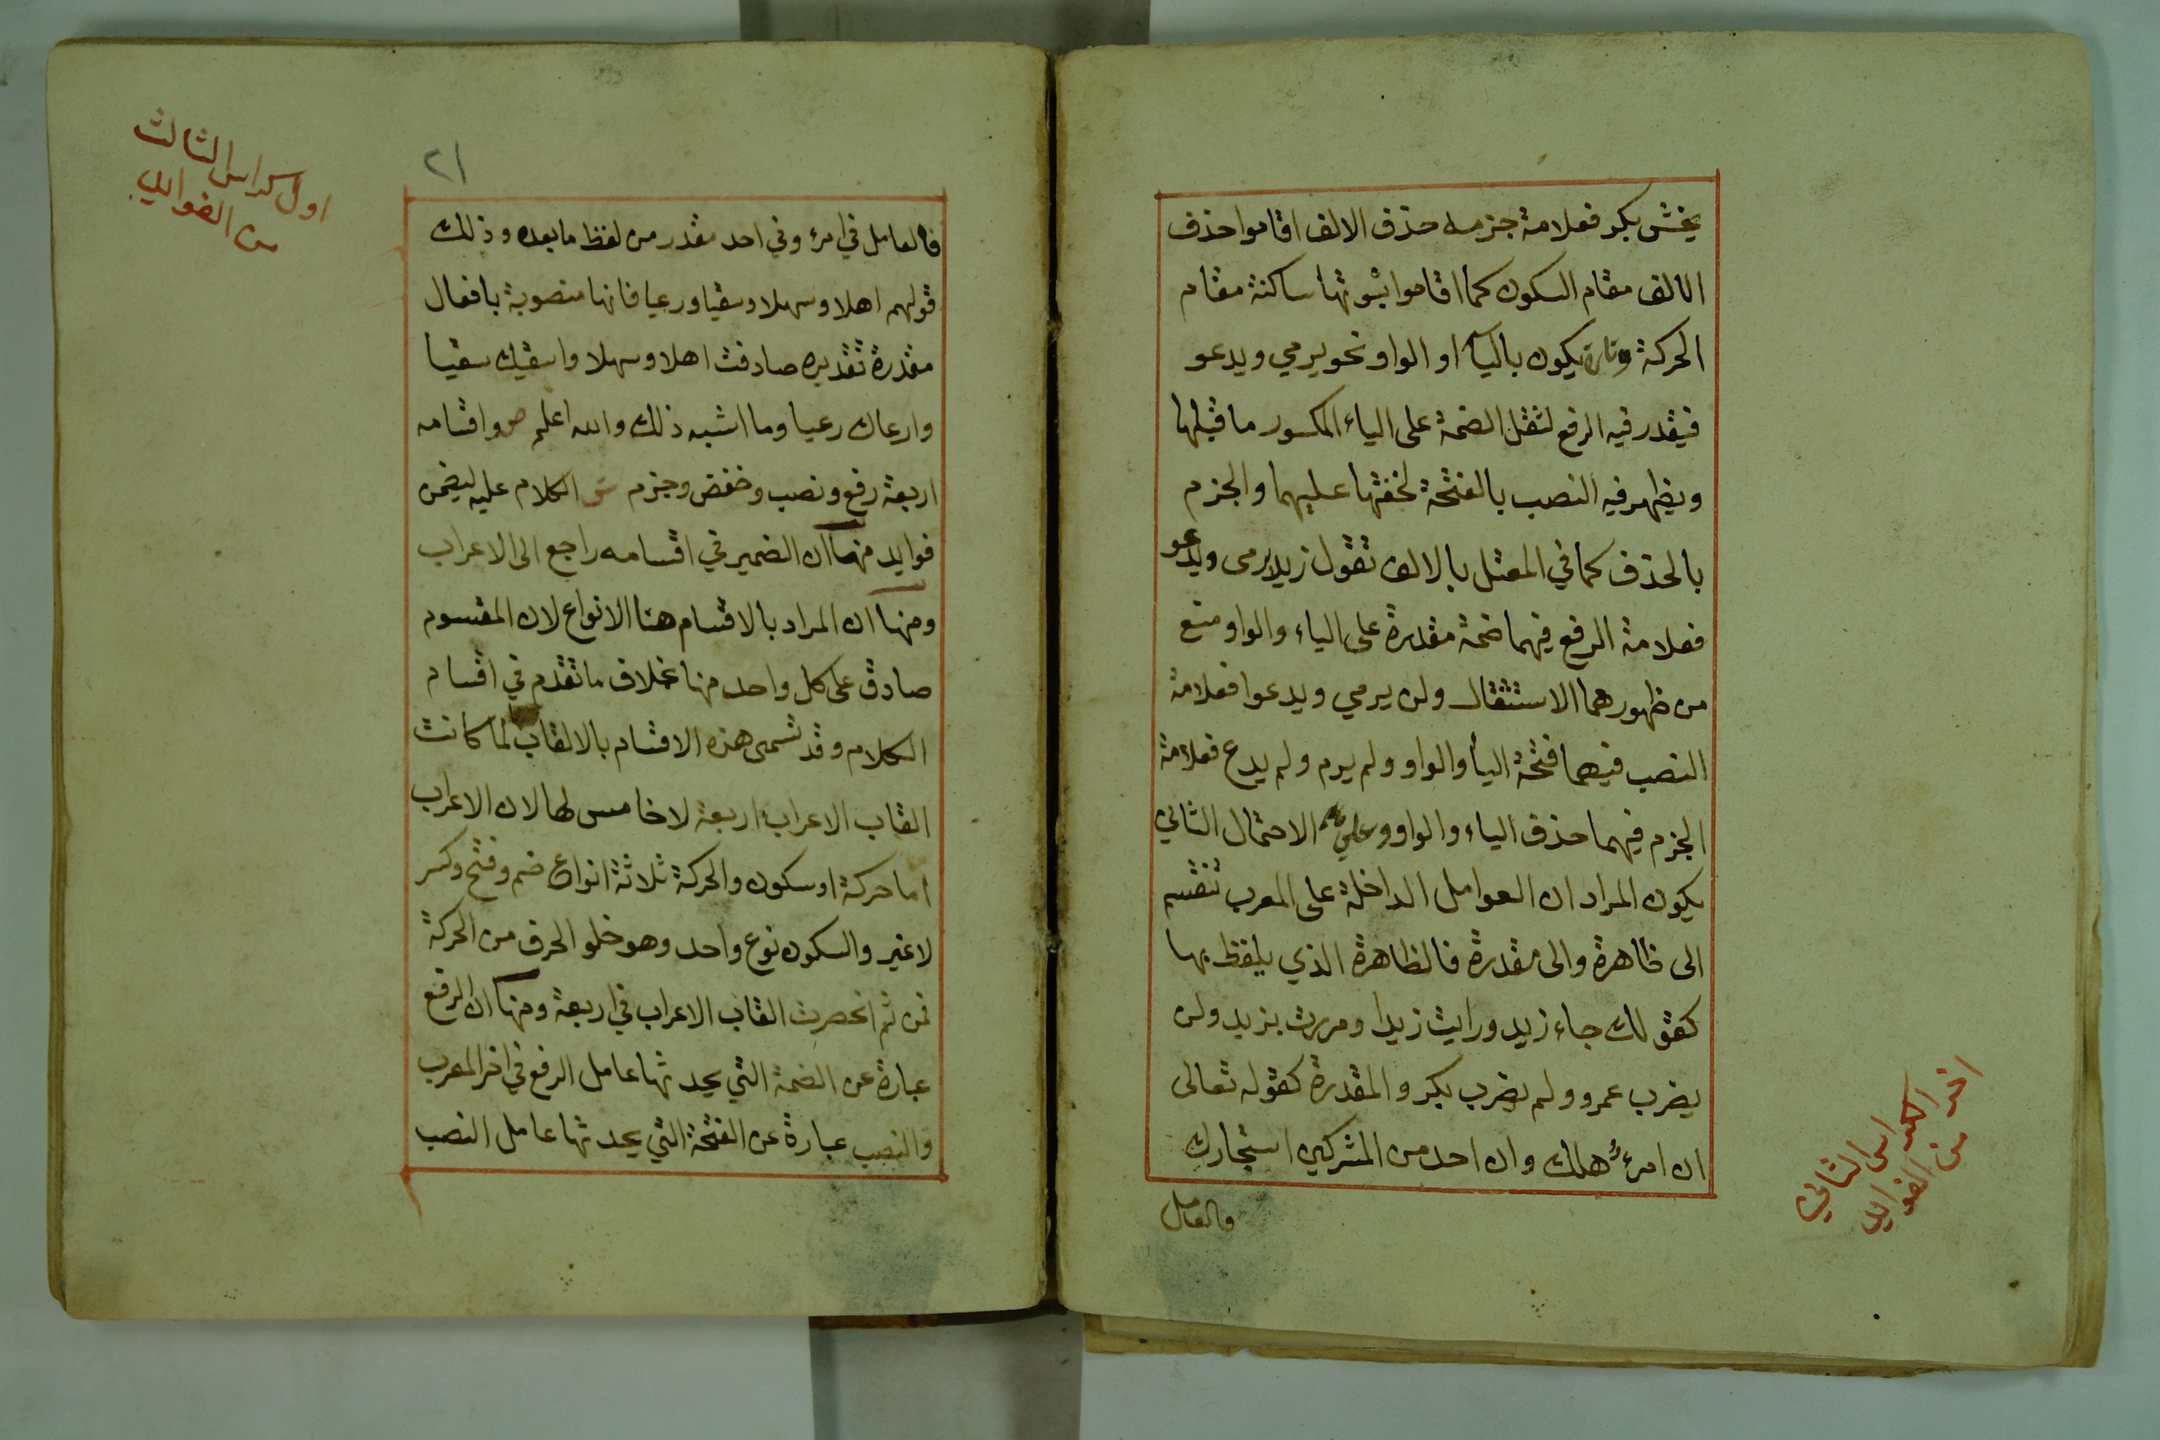 يخش بكر فعلامة جزمه حذف الالف اقاموا حذف
الالف مقام السكون كما اقاموا ثبوتها ساكنة مقام
الحركة وتارة يكون بالياء او الواو نحو يرمي ويدعو
فيقدر فيه الرفع لثقل الضمة على الياء المكسور ما قبلها
ويظهر فيه النصب بالفتحة لخفتها عليهما والجزم
بالحذف كما في المعتل بالالف تقول زيد يرمى ويدعو
فعلامة الرفع فيهما ضمة مقدرة على الياء والواو منع
من ظهورهما الاستثقال ولن يرمي ويدعوا فعلامة
النصب فيهما فتحة اليأ والواو ولم يرم ولم يدع فعلامة
الجزم فيهما حذف الياء والواو وعلى الاحتمال الثاني
يكون المراد ان العوامل الداخلة على المعرب تنقسم
الى ظاهرة والى مقدرة فالظاهرة الذي يلفظ بها
كقولك جاء زيد ورايت زيدا ومررت بزيد ولن
يضرب عمرو ولم يضرب بكر والمقدرة كقوله تعالى
ان امرءٌ هلك وان احد من المشركين استجارك
فالعامل
اخر الكراس الثاني
من الفوايد
اول كراس الثالث
من الفوايد
٢١
فالعامل في امرء وفي احد مقدر من لفظ ما بعده وذلك
قولهم اهلا وسهلا وسقيا ورعيا فانها منصوبة بافعال
مقدرة تقديره صادفت اهلا وسهلا واسقيك سقيا
وارعاك رعيا وما اشبه ذلك والله اعلم ص واقسامه
اربعة رفع ونصب وخفض وجزم ش الكلام عليه ليضمن
فوايد منها ان الضمير في اقسامه راجع الى الاعراب
ومنها ان المراد بالاقسام هنا الانواع لان المقسوم
صادق على كل واحد منها بخلاف ما تقدم في اقسام
الكلام وقد تسمى هذه الاقسام بالالقاب لما كانت
القاب الاعراب اربعة لا خامس لها لان الاعراب
اما حركة او سكون والحركة ثلاثة انواع ضم وفتح وكسر
لا غير والسكون نوع واحد وهو خلو الحرف من الحركة
فمن ثم انحصرت القاب الاعراب في اربعة ومنها ان الرفع
عبارة عن الضمة التي يحدثها عامل الرفع في اخر المعرب
والنصب عبارة عن الفتحة التي يحدثها عامل النصب